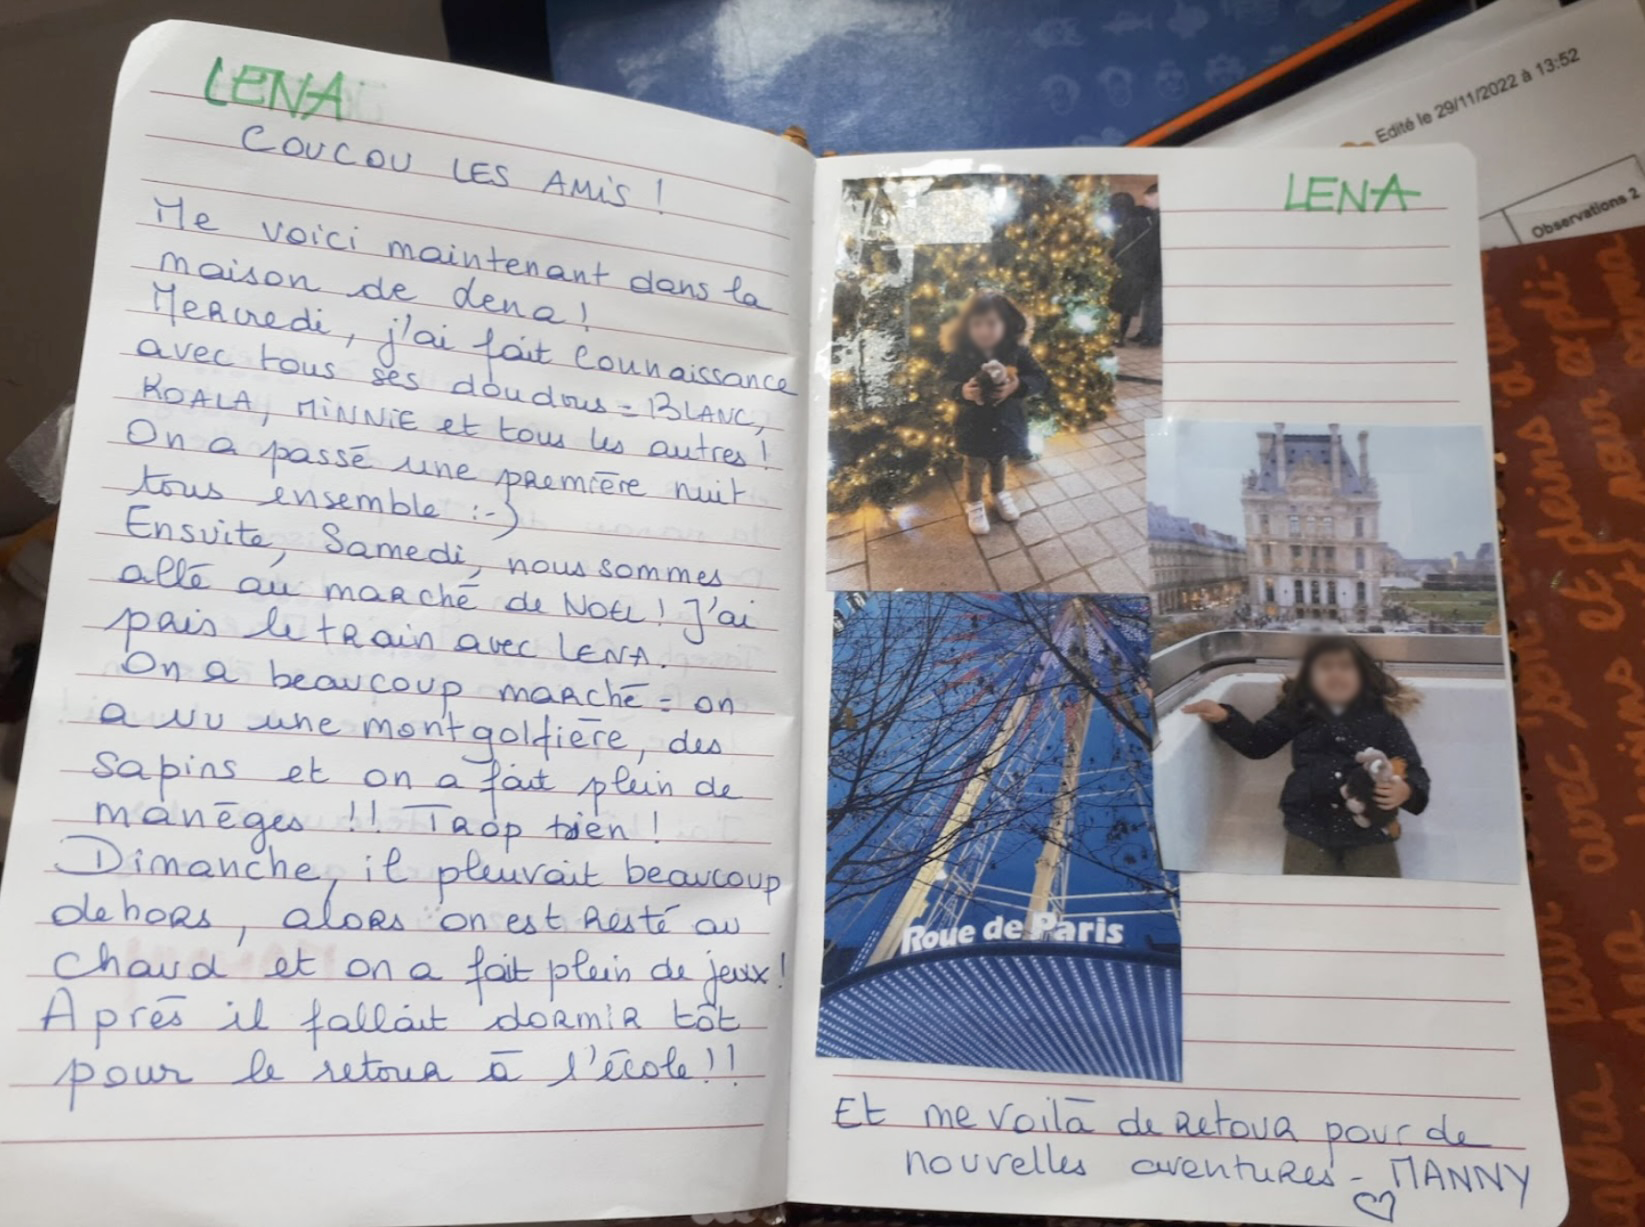 LENA
COUCOU LES AMIS !
Me voici maintenant dans la
maison de Lena !
Mercredi, j'ai fait connaissance
avec tous ses doudous = BLANC,
KOALA, MINNIE et tous les autres !
On a passé une première nuit
tous ensemble :-)
Ensuite, Samedi, nous sommes
allé au marché de Noël ! J'ai
pris le train avec LENA.
On a beaucoup marché = on
a vu une montgolfière, des
sapins et on a fait plein de
manèges !! Trop bien !
Dimanche, il pleuvait beaucoup
dehors, alors on est resté au
chaud et on a fait plein de jeux !
Après il fallait dormir tôt
pour le retour à l'école !!
LENA
Roue de Paris
Et me voilà de retour pour de
nouvelles aventures - MANNY
Edité le 29/11/2022 à 13:52
Observations 2